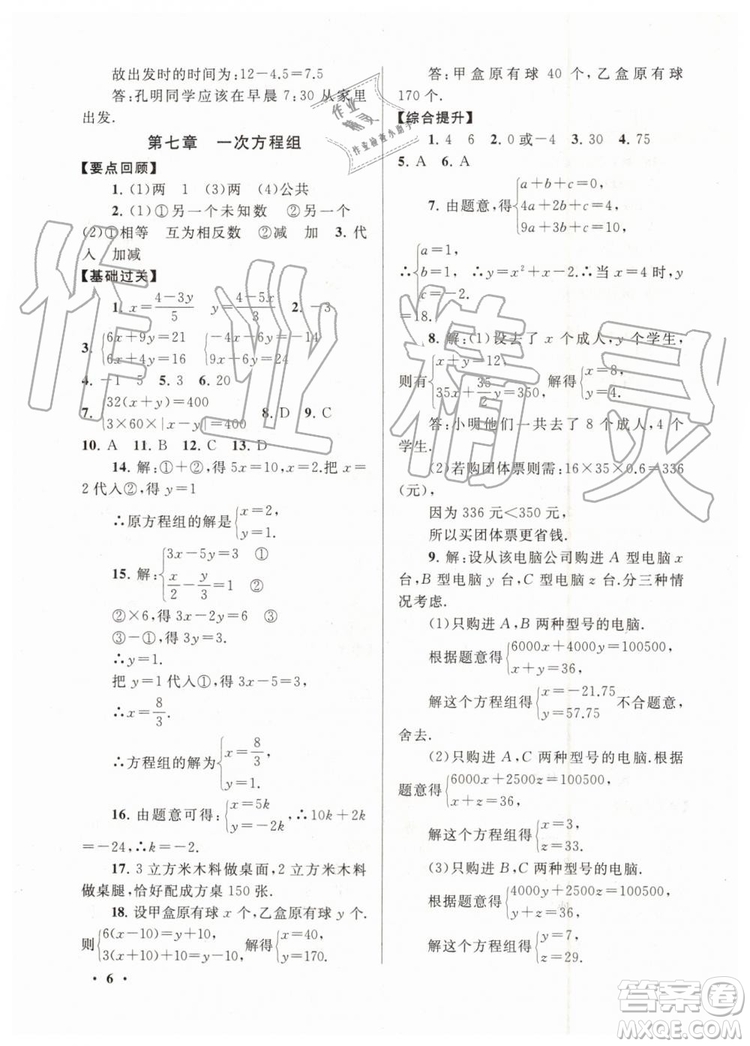 故出发时的时间为:12－4.5＝7.5
答:孔明同学应该在早晨 7:30 从家里
出发.
第七章　一次方程组
【要点回顾】
1. (1)两　1　(3)两　(4)公共
2. (1)①另一个未知数　②另一个
(2)①相等　互为相反数　②减　加　3. 代
入　加减
【基础过关】
1. x＝(4－3y)/5　y＝(4－5x)/3　2. －3
3. {6x＋9y＝21　{6x＋4y＝16　{9y－4y＝21－16
4. －1　5　5. 3　6. 20
7. {32(x＋y)＝400　{3×60×|x－y|＝400　8. D　9. C
10. A　11. B　12. C　13. D
14. 解:①＋②, 得 5x＝10, 把 x＝
2 代入②, 得 y＝1
∴原方程组的解是{x＝2,　{y＝1.
15. 解:{3x－5y＝3　①　{x/2－y/3＝1　②
②×6, 得 3x－2y＝6　③
③－①, 得 3y＝3
∴y＝1.
把 y＝1 代入①, 得 3x－5＝3
∴x＝8/3.
∴方程组的解为{x＝8/3　{y＝1
16. 由题意可得:{x＝5k　{y＝k　∴10k＋2k＝
－24,∴k＝－2.
17. 3 立方米木料做桌面,2 立方米木料
做桌腿,恰好配成方桌 150 张.
18. 设甲盒原有球 x 个,乙盒原有球 y 个.
则{6(x－10)＝y＋10,　{3(x＋10)＝y－10,　解得{x＝40,　{y＝170.
• 6 •
答:甲盒原有球 40 个,乙盒原有球
170 个.
【综合提升】
1. 4　6　2. 0 或－4　3. 30　4. 75
5. A　6. A
7. 由题意,得{a＋b＋c＝0,　{4a＋2b＋c＝0,　{9a＋3b＋c＝0,
∴{a＝1,　{b＝1,　∴y＝x²＋x－2. 当 x＝4 时, y
＝18.
8. 解:(1)设去了 x 个成人,y 个学生,
则有{35x＋35/2 y＝350,　解得{x＝8,　{y＝4.
答:小明他们一共去了 8 个成人,4 个
学生.
(2)若购团体票则需:16×35×0.6＝336
(元),
因为 336 元＜350 元
所以买团体票更省钱.
9. 解:设从该电脑公司购进 A 型电脑 x
台,B 型电脑 y 台,C 型电脑 z 台.分三种情
况考虑.
(1)只购进 A,B 两种型号的电脑.
根据题意得{6000x＋4000y＝100500,　{x＋y＝36,
解这个方程组得{x＝－21.75　{y＝57.75　不合题意,
舍去.
(2)只购进 A,C 两种型号的电脑.根据
题意得{6000x＋2500z＝100500,　{x＋z＝36,
解这个方程组得{x＝3,　{z＝33.
(3)只购进 B,C 两种型号的电脑.
根据题意得{4000y＋2500z＝100500,　{y＋z＝36,
解这个方程组得{y＝7,　{z＝29.
作业精灵
作业
精灵
作业检查小助手
答案圈
MXQE.COM